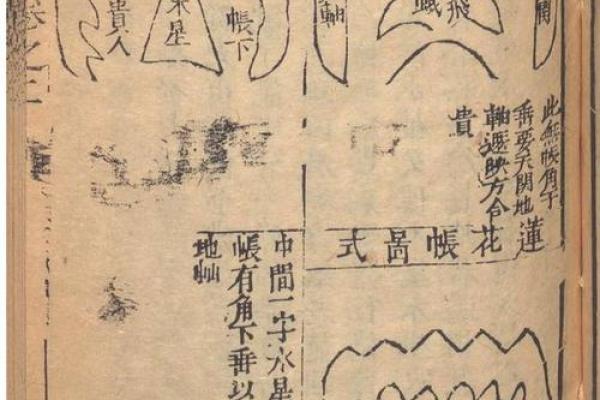 飛
軸
帳下
星
貴人
卷之
此無帳角下
垂要天關地
軸遞映方合
貴
蓮花帳啚式
中間一字水星
帳有角下垂以
地軸